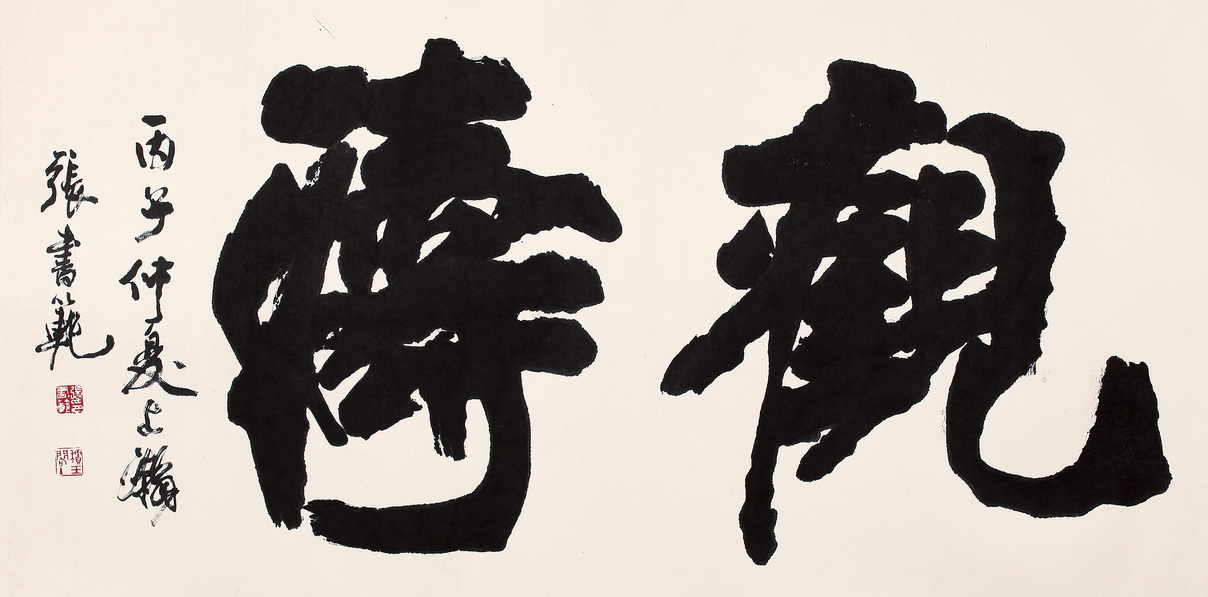 觀濤
丙子仲夏上瀚
張書範